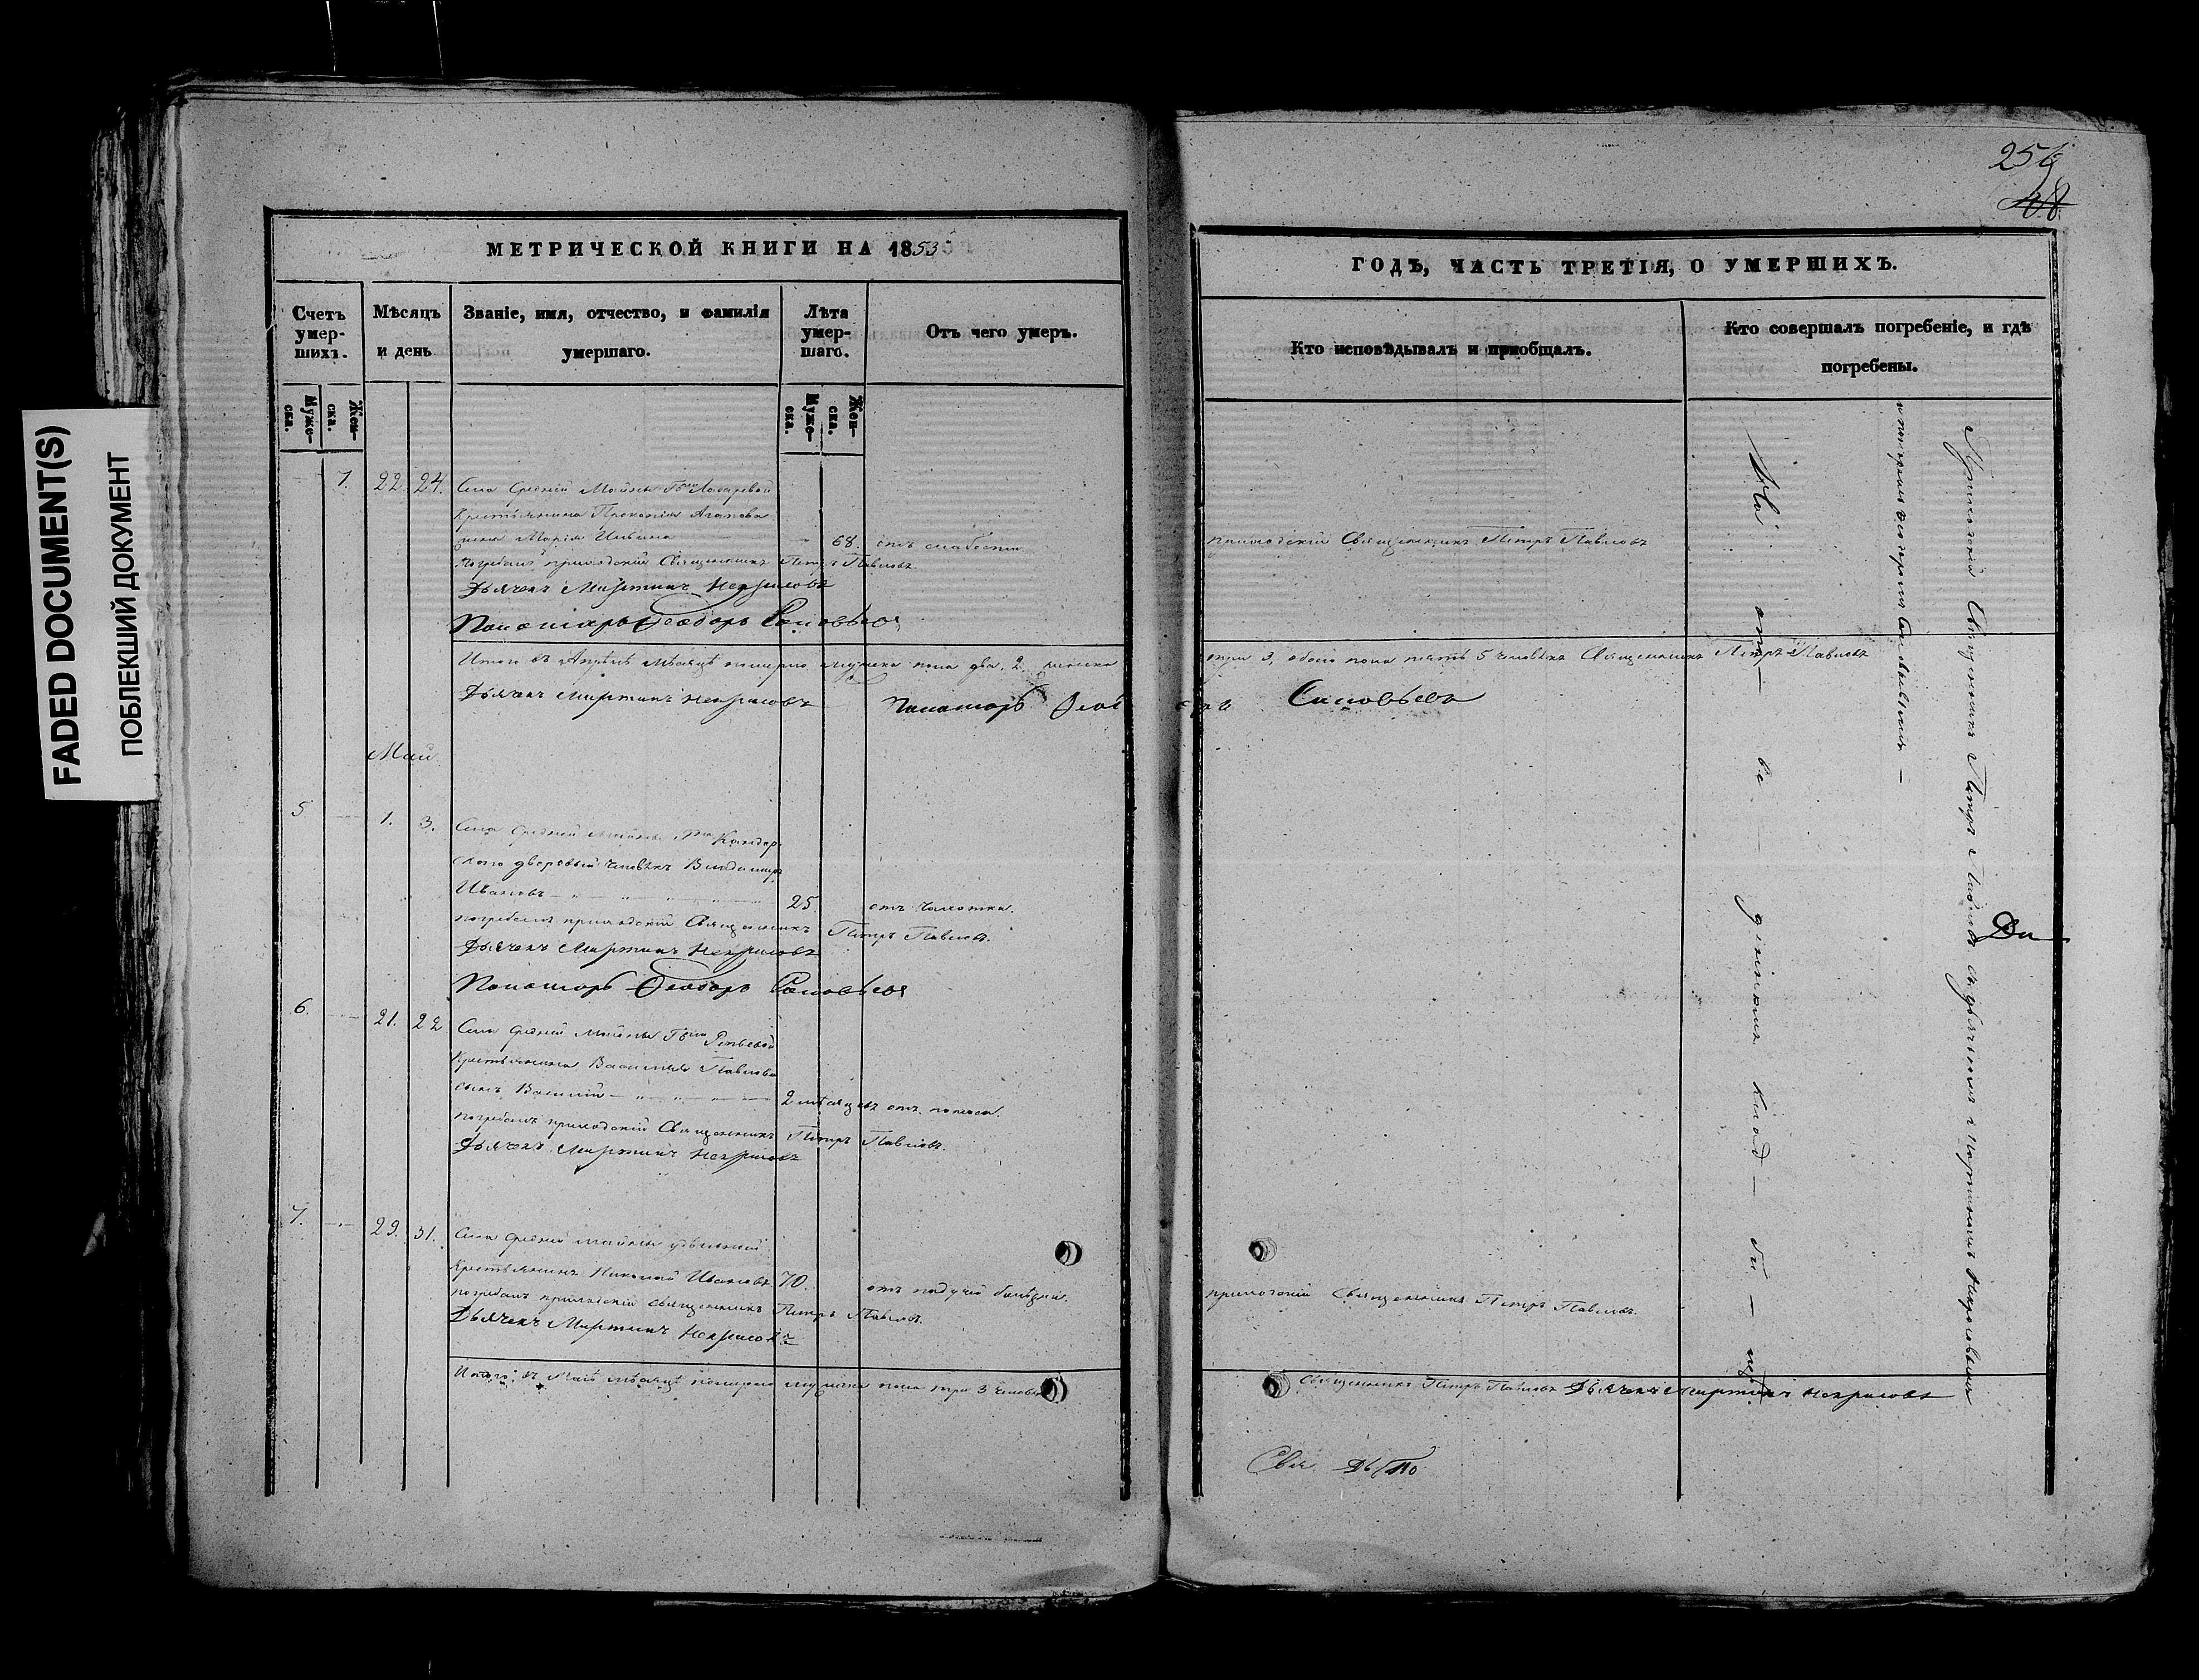 FADED DOCUMENT(S)
ПОБЛЕКШИЙ ДОКУМЕНТ
МЕТРИЧЕСКОЙ КНИГИ НА 1853
Счетъ умер-шихъ.
Мѣсяцъ и день
Званіе, имя, отчество, и фамилія умершаго.
Лѣта умер-шаго.
Отъ чего умеръ.
Муже-ска.
Жен-ска.
Муже-ска.
Жен-ска.
7. 22 24. Села Средней Майны Лазаревой
Крестьянина Прокопія Агапова
жена Марія 68. отъ слабости
погребалъ приходскій Священникъ Петръ Павловъ
Дьячекъ Мартинъ Некрасовъ
Пономарь Ѳеодоръ Соловьевъ
Итого въ Апрѣлѣ мѣсяцѣ померло мужеска пола два 2. женска
Дьячекъ Мартинъ Некрасовъ Пономарь
Май
5 1. 3. Села Средней Майны
дворовый человѣкъ Владимиръ
Ивановъ 25. отъ чахотки.
погребалъ приходскій Священникъ Петръ Павловъ.
Дьячекъ Мартинъ Некрасовъ
Пономарь Ѳеодоръ Соловьевъ
6. 21. 22 Села Средней Майны
Крестьянина Василья Павлова
сынъ Василій 2 мѣсяцовъ отъ поноса.
погребалъ приходскій Священникъ Петръ Павловъ.
Дьячекъ Мартинъ Некрасовъ
7. 29. 31. Села Средней Майны удѣльный
Крестьянинъ Николай Ивановъ 70. отъ падучей болѣзни.
погребалъ приходскій Священникъ Петръ Павловъ.
Дьячекъ Мартинъ Некрасовъ
Итого въ Маѣ мѣсяцѣ померло мужеска пола три 3
256
48
ГОДЪ, ЧАСТЬ ТРЕТІЯ, О УМЕРШИХЪ.
Кто исповѣдывалъ и пріобщалъ.
Кто совершалъ погребеніе, и гдѣ погребены.
приходскій Священникъ Петръ Павловъ
три 3, обоего пола пять 5 человѣкъ Священникъ Петръ Павловъ
Соловьевъ
приходскій Священникъ Петръ Павловъ.
Священникъ Петръ Павловъ Дьячекъ Мартинъ Некрасовъ
На от- ве - денномъ клад - би - щѣ.
Приходскій Священникъ Петръ Павловъ съ дьячкомъ Мартиномъ Некрасовымъ
и пономаремъ Ѳеодоромъ Соловьевымъ -